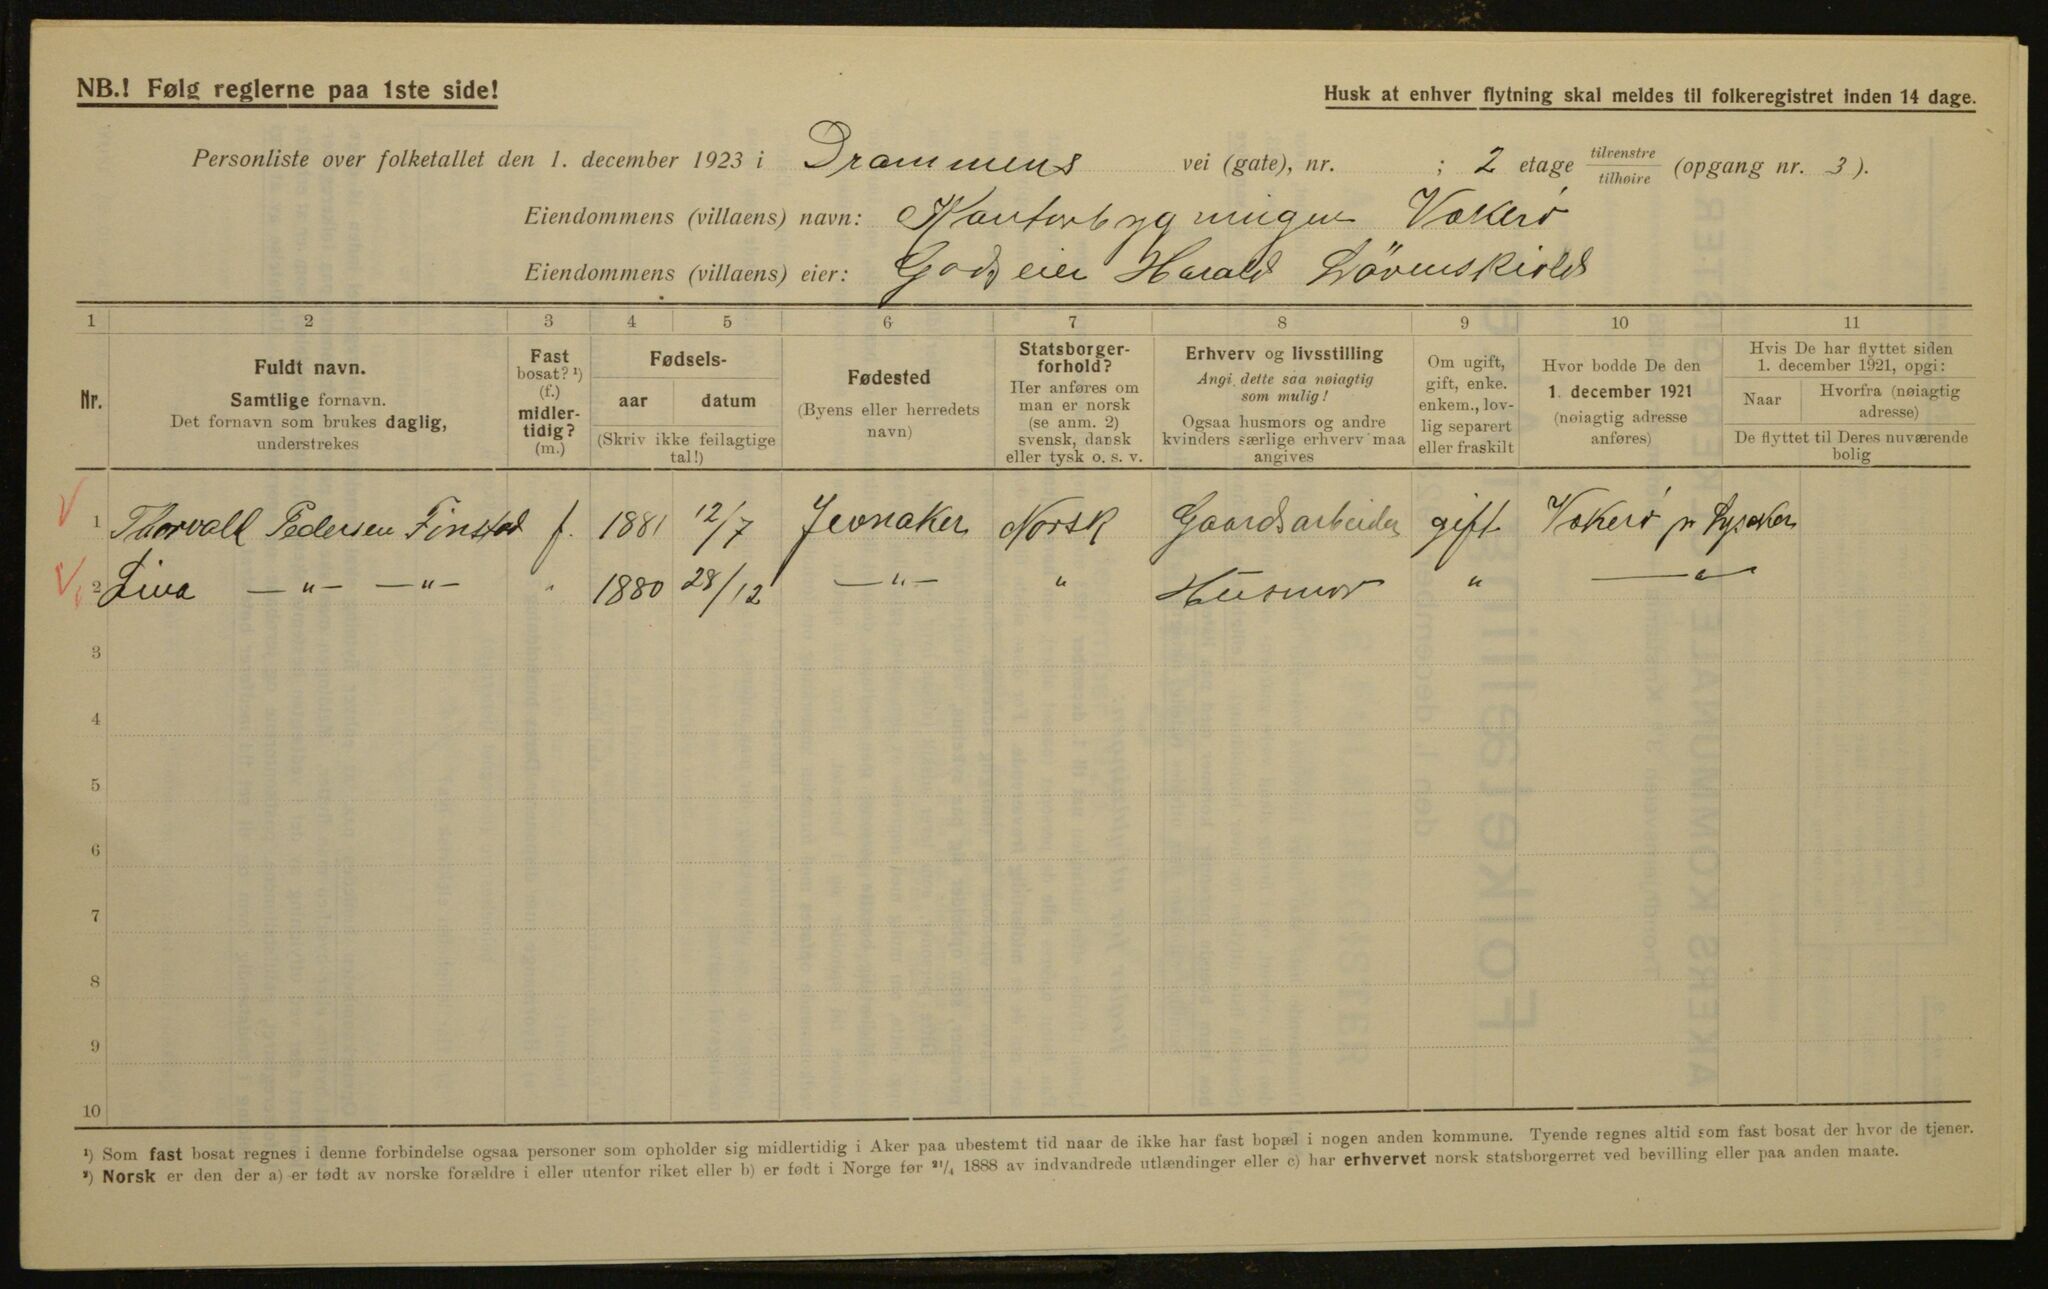 NB.! Følg reglerne paa 1ste side!
Husk at enhver flytning skal meldes til folkeregistret inden 14 dage.
Personliste over folketallet den 1. december 1923 i Drammens vei (gate), nr. ; 2 etage tilvenstre/tilhøire (opgang nr. 3).
Eiendommens (villaens) navn: Kontorbygningen Vækerø
Eiendommens (villaens) eier: Godseier Harald Løvenskiold
1 2 3 4 5 6 7 8 9 10 11
Nr.
Fuldt navn.
Samtlige fornavn.
Det fornavn som brukes daglig,
understrekes
Fast
bosat? ¹)
(f.)
midler-
tidig?
(m.)
Fødsels-
aar datum
(Skriv ikke feilagtige
tal!)
Fødested
(Byens eller herredets
navn)
Statsborger-
forhold?
Her anføres om
man er norsk
(se anm. 2)
svensk, dansk
eller tysk o. s. v.
Erhverv og livsstilling
Angi dette saa nøiagtig
som mulig!
Ogsaa husmors og andre
kvinders særlige erhverv maa
angives
Om ugift,
gift, enke.
enkem., lov-
lig separert
eller fraskilt
Hvor bodde De den
1. december 1921
(nøiagtig adresse
anføres)
Hvis De har flyttet siden
1. december 1921, opgi:
Naar
Hvorfra (nøiagtig
adresse)
De flyttet til Deres nuværende
bolig
1 Thorvald Pedersen Finstad f. 1881 12/7 Jevnaker Norsk Gaardsarbeider gift Vækerø pr Lysaker
2 Lina —„— —„— „ 1880 28/12 —„— „ Husmor „ —„—
3
4
5
6
7
8
9
10
¹) Som fast bosat regnes i denne forbindelse ogsaa personer som opholder sig midlertidig i Aker paa ubestemt tid naar de ikke har fast bopæl i nogen anden kommune. Tyende regnes altid som fast bosat der hvor de tjener.
²) Norsk er den der a) er født av norske forældre i eller utenfor riket eller b) er født i Norge før ²¹/₄ 1888 av indvandrede utlændinger eller c) har erhvervet norsk statsborgerret ved bevilling eller paa anden maate.